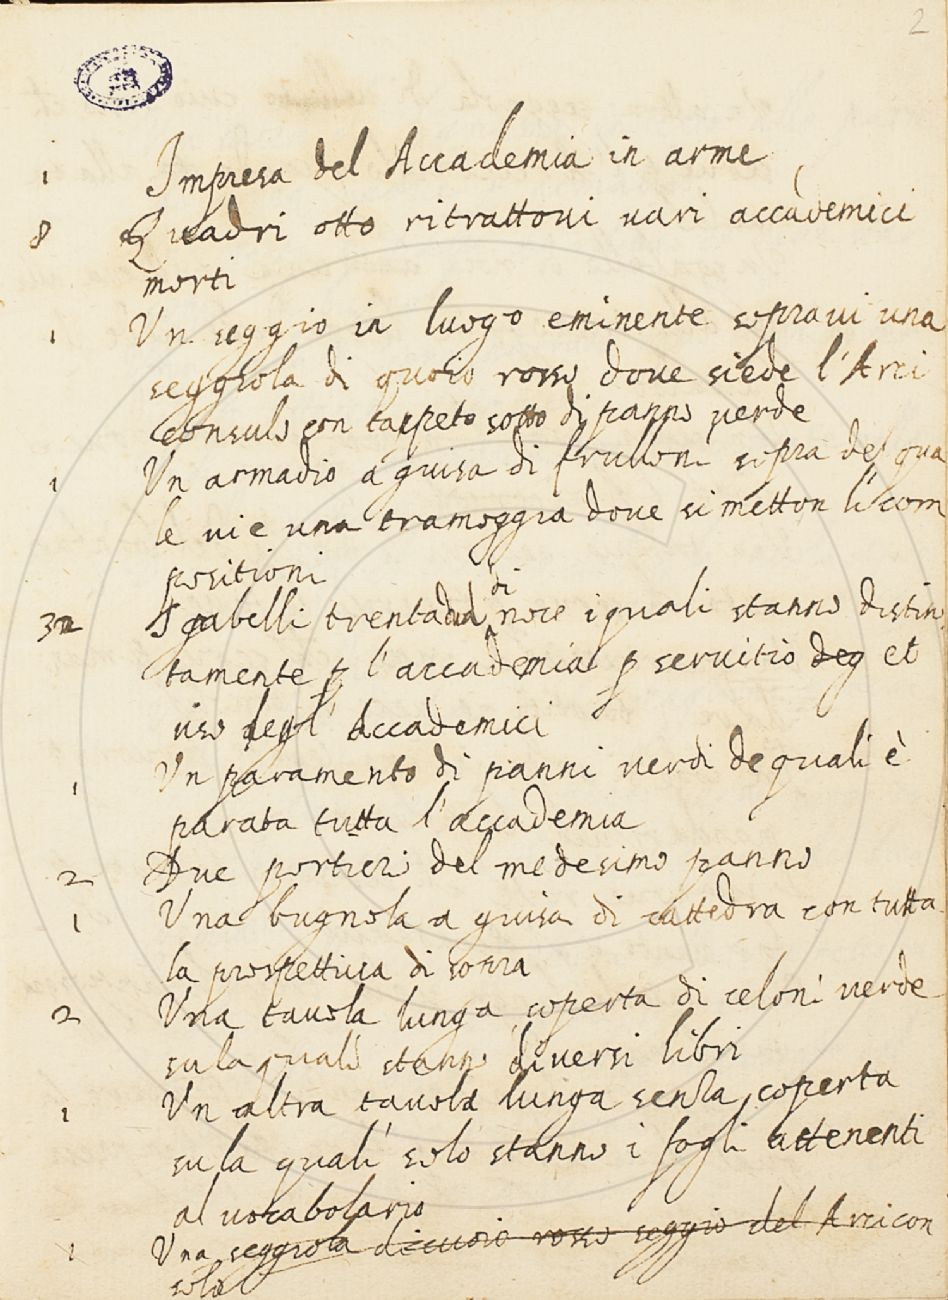 2
1 Impresa del Accademia in arme
8 Quadri otto ritrattovi vari accademici
morti
1 Un seggio in luogo eminente sopravi una
seggiola di quoio rosso dove siede l'Arci
consulo con tappeto sotto di panno verde
1 Un armadio a guisa di frulloni sopra del qua
le vi e una tramoggia dove si metton li com
positioni
32 Sgabelli trentadua di noce i quali stanno distin
tamente p l'accademia p servitio deg et
uso degl' Accademici
1 Un paramento di panni verdi de quali è
parata tutta l'accademia
2 Due portieri del medesimo panno
1 Una bugnola a guisa di cattedra con tutta
la prospettiva di sopra
2 Una tavola lunga coperta di celoni verde
su la quali stanno diversi libri
1 Un altra tavola lunga senza coperta
su la quali solo stanno i fogli attenenti
al vocabolario
1 Una seggiola di cuoio rosso seggio del Arcicon
solo